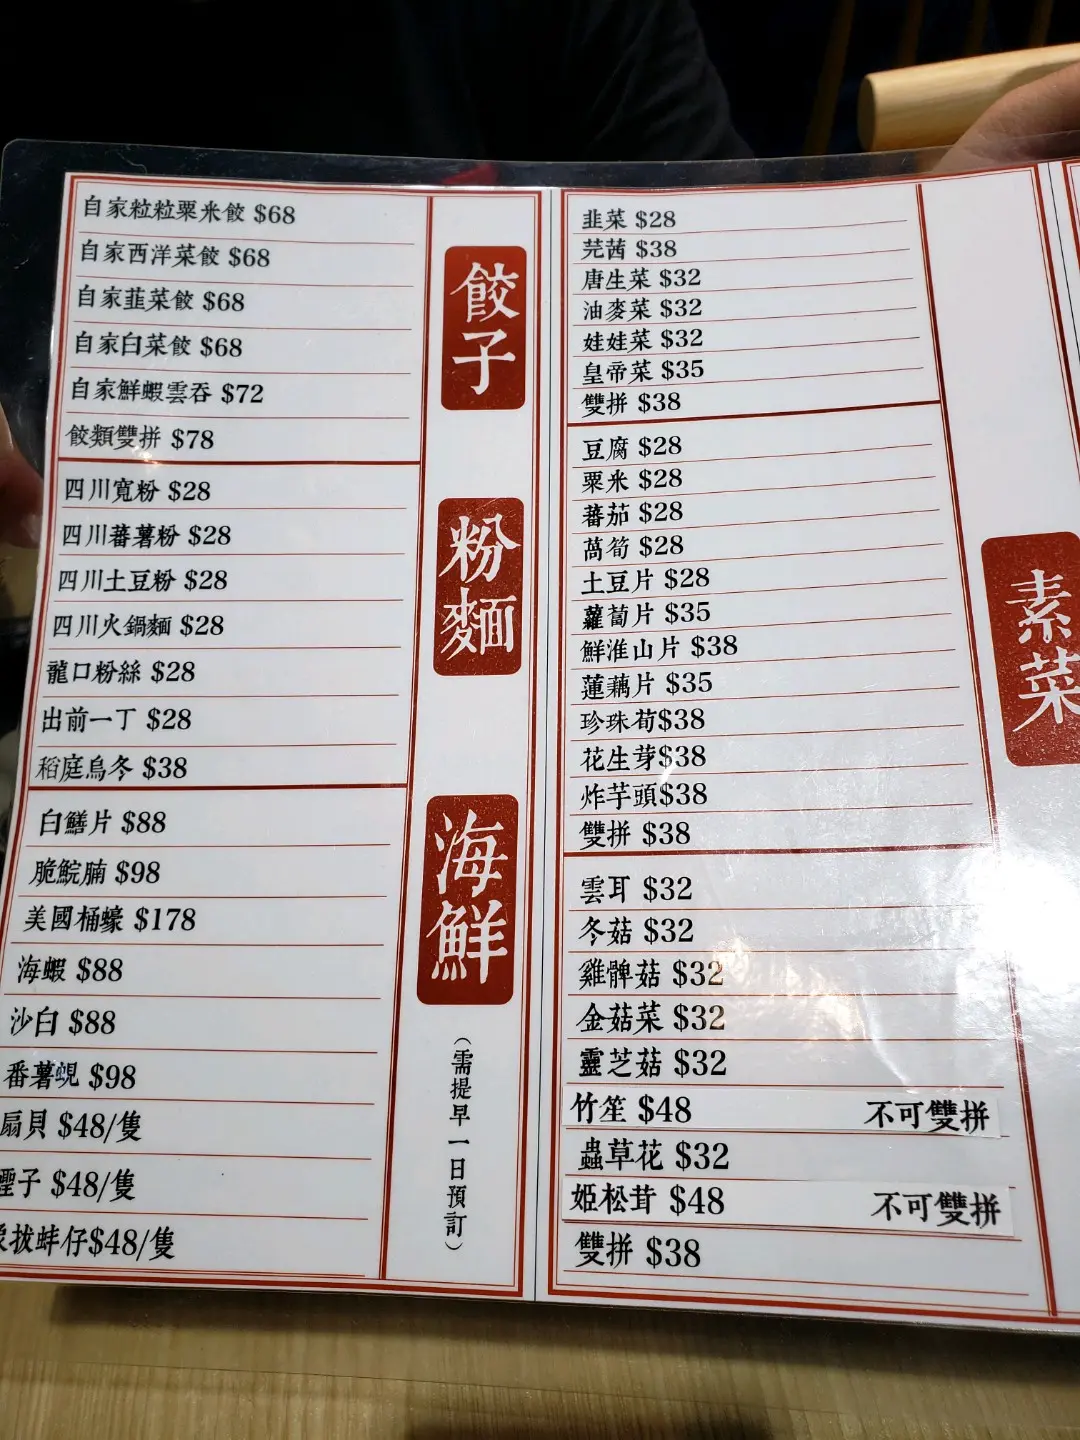 自家粒粒粟米餃 $68
自家西洋菜餃 $68
自家韮菜餃 $68
自家白菜餃 $68
自家鮮蝦雲吞 $72
餃類雙拼 $78
餃子
四川寬粉 $28
四川蕃薯粉 $28
四川土豆粉 $28
四川火鍋麵 $28
龍口粉絲 $28
出前一丁 $28
稻庭烏冬 $38
粉麵
白鱔片 $88
脆鯇腩 $98
美國桶蠔 $178
海蝦 $88
沙白 $88
番薯蜆 $98
扇貝 $48/隻
蟶子 $48/隻
拔蚌仔$48/隻
海鮮
（需提早一日預訂）
韭菜 $28
芫茜 $38
唐生菜 $32
油麥菜 $32
娃娃菜 $32
皇帝菜 $35
雙拼 $38
豆腐 $28
粟米 $28
蕃茄 $28
萵筍 $28
土豆片 $28
蘿蔔片 $35
鮮淮山片 $38
蓮藕片 $35
珍珠荀$38
花生芽$38
炸芋頭$38
雙拼 $38
雲耳 $32
冬菇 $32
雞髀菇 $32
金菇菜 $32
靈芝菇 $32
竹笙 $48 不可雙拼
蟲草花 $32
姬松茸 $48 不可雙拼
雙拼 $38
素菜